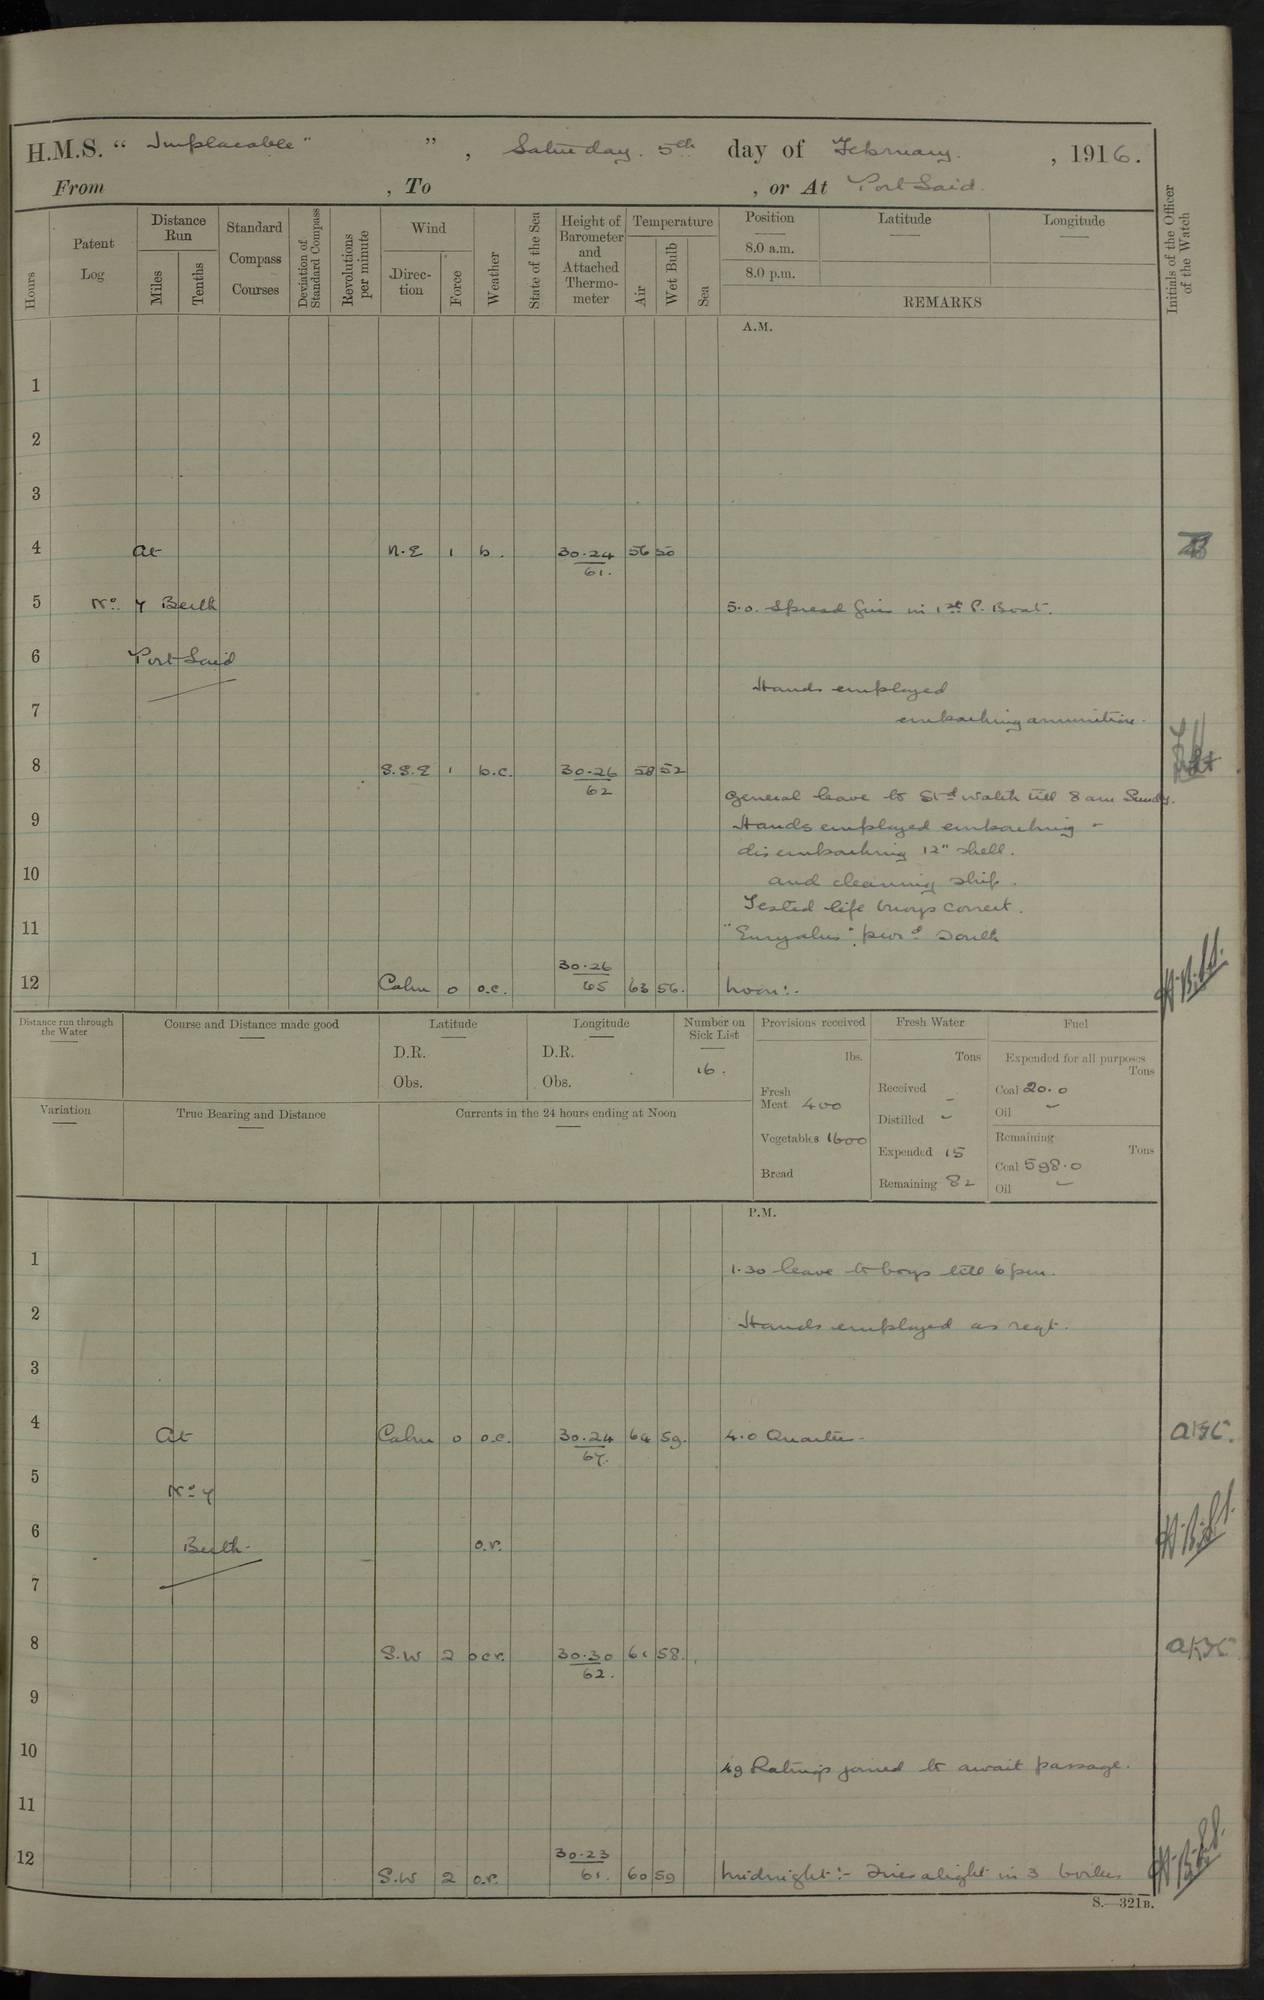 H.M.S. " Implacable " ", Saturday. 5th day of February. , 1916.
From , To , or At Port Said.
Hours
Patent Log
Distance Run
Miles
Tenths
Standard Compass Courses
Deviation of Standard Compass
Revolutions per minute
Wind
Direc-tion
Force
Weather
State of the Sea
Height of Barometer and Attached Thermo-meter
Temperature
Air
Wet Bulb
Sea
Position
8.0 a.m.
8.0 p.m.
Latitude
Longitude
REMARKS
Initials of the Officer of the Watch
A.M.
1
2
3
4 At N.E 1 b. 30.24 56 50
61.
5 No. 7 Berth 5.0. Spread fires in 1st P. Boat.
6 Port Said
Hands employed
7 embarking ammunition.
8 S.S.E 1 b.c. 30.26 58 52
62
General leave to Std watch till 8 am Sunday.
9 Hands employed embarking -
disembarking 12" shell.
10 and cleaning ship.
Tested life buoys correct.
11 "Euryalus" procd South
30.26
12 Calm 0 o.c. 65 63 56. Noon:-
Distance run through the Water
Course and Distance made good
Latitude
D.R.
Obs.
Longitude
D.R.
Obs.
Number on Sick List
16.
Provisions received
lbs.
Fresh Meat 400
Vegetables 1600
Bread
Fresh Water
Tons
Received -
Distilled -
Expended 15
Remaining 82
Fuel
Expended for all purposes
Tons
Coal 20.0
Oil -
Remaining
Tons
Coal 598.0
Oil -
Variation
True Bearing and Distance
Currents in the 24 hours ending at Noon
P.M.
1 1.30 leave to boys till 6 pm.
2 Hands employed as reqt.
3
4 At Calm 0 o.c. 30.24 64 59. 4.0 Quarters.
67.
5 No 7
6 Berth. o.r.
7
8 S.W 2 o.c.r. 30.30 61 58.
62.
9
10 49 Ratings joined to await passage.
11
30.23
12 S.W 2 o.r. 61. 60 59 Midnight:- Fires alight in 3 boilers
S.—321B.